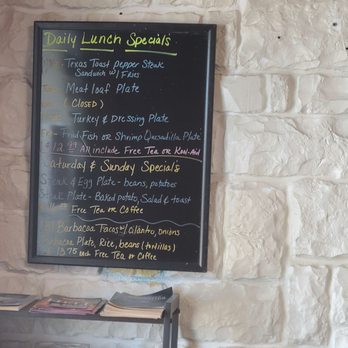 Daily Lunch Specials
Texas Toast pepper Steak
Sandwich w/ Fries
Meat loaf Plate
(CLOSED)
Turkey & Dressing Plate
Fish or Shrimp Quesadilla Plate
All include Free Tea or Kool-Aid
Saturday & Sunday Specials
Steak & Egg Plate - beans, potatoes
Steak Plate - Baked potato, Salad & toast
Free Tea or Coffee
Barbacoa Tacos w/ cilantro, onions
Barbacoa Plate, Rice, beans (tortillas)
Free Tea or Coffee